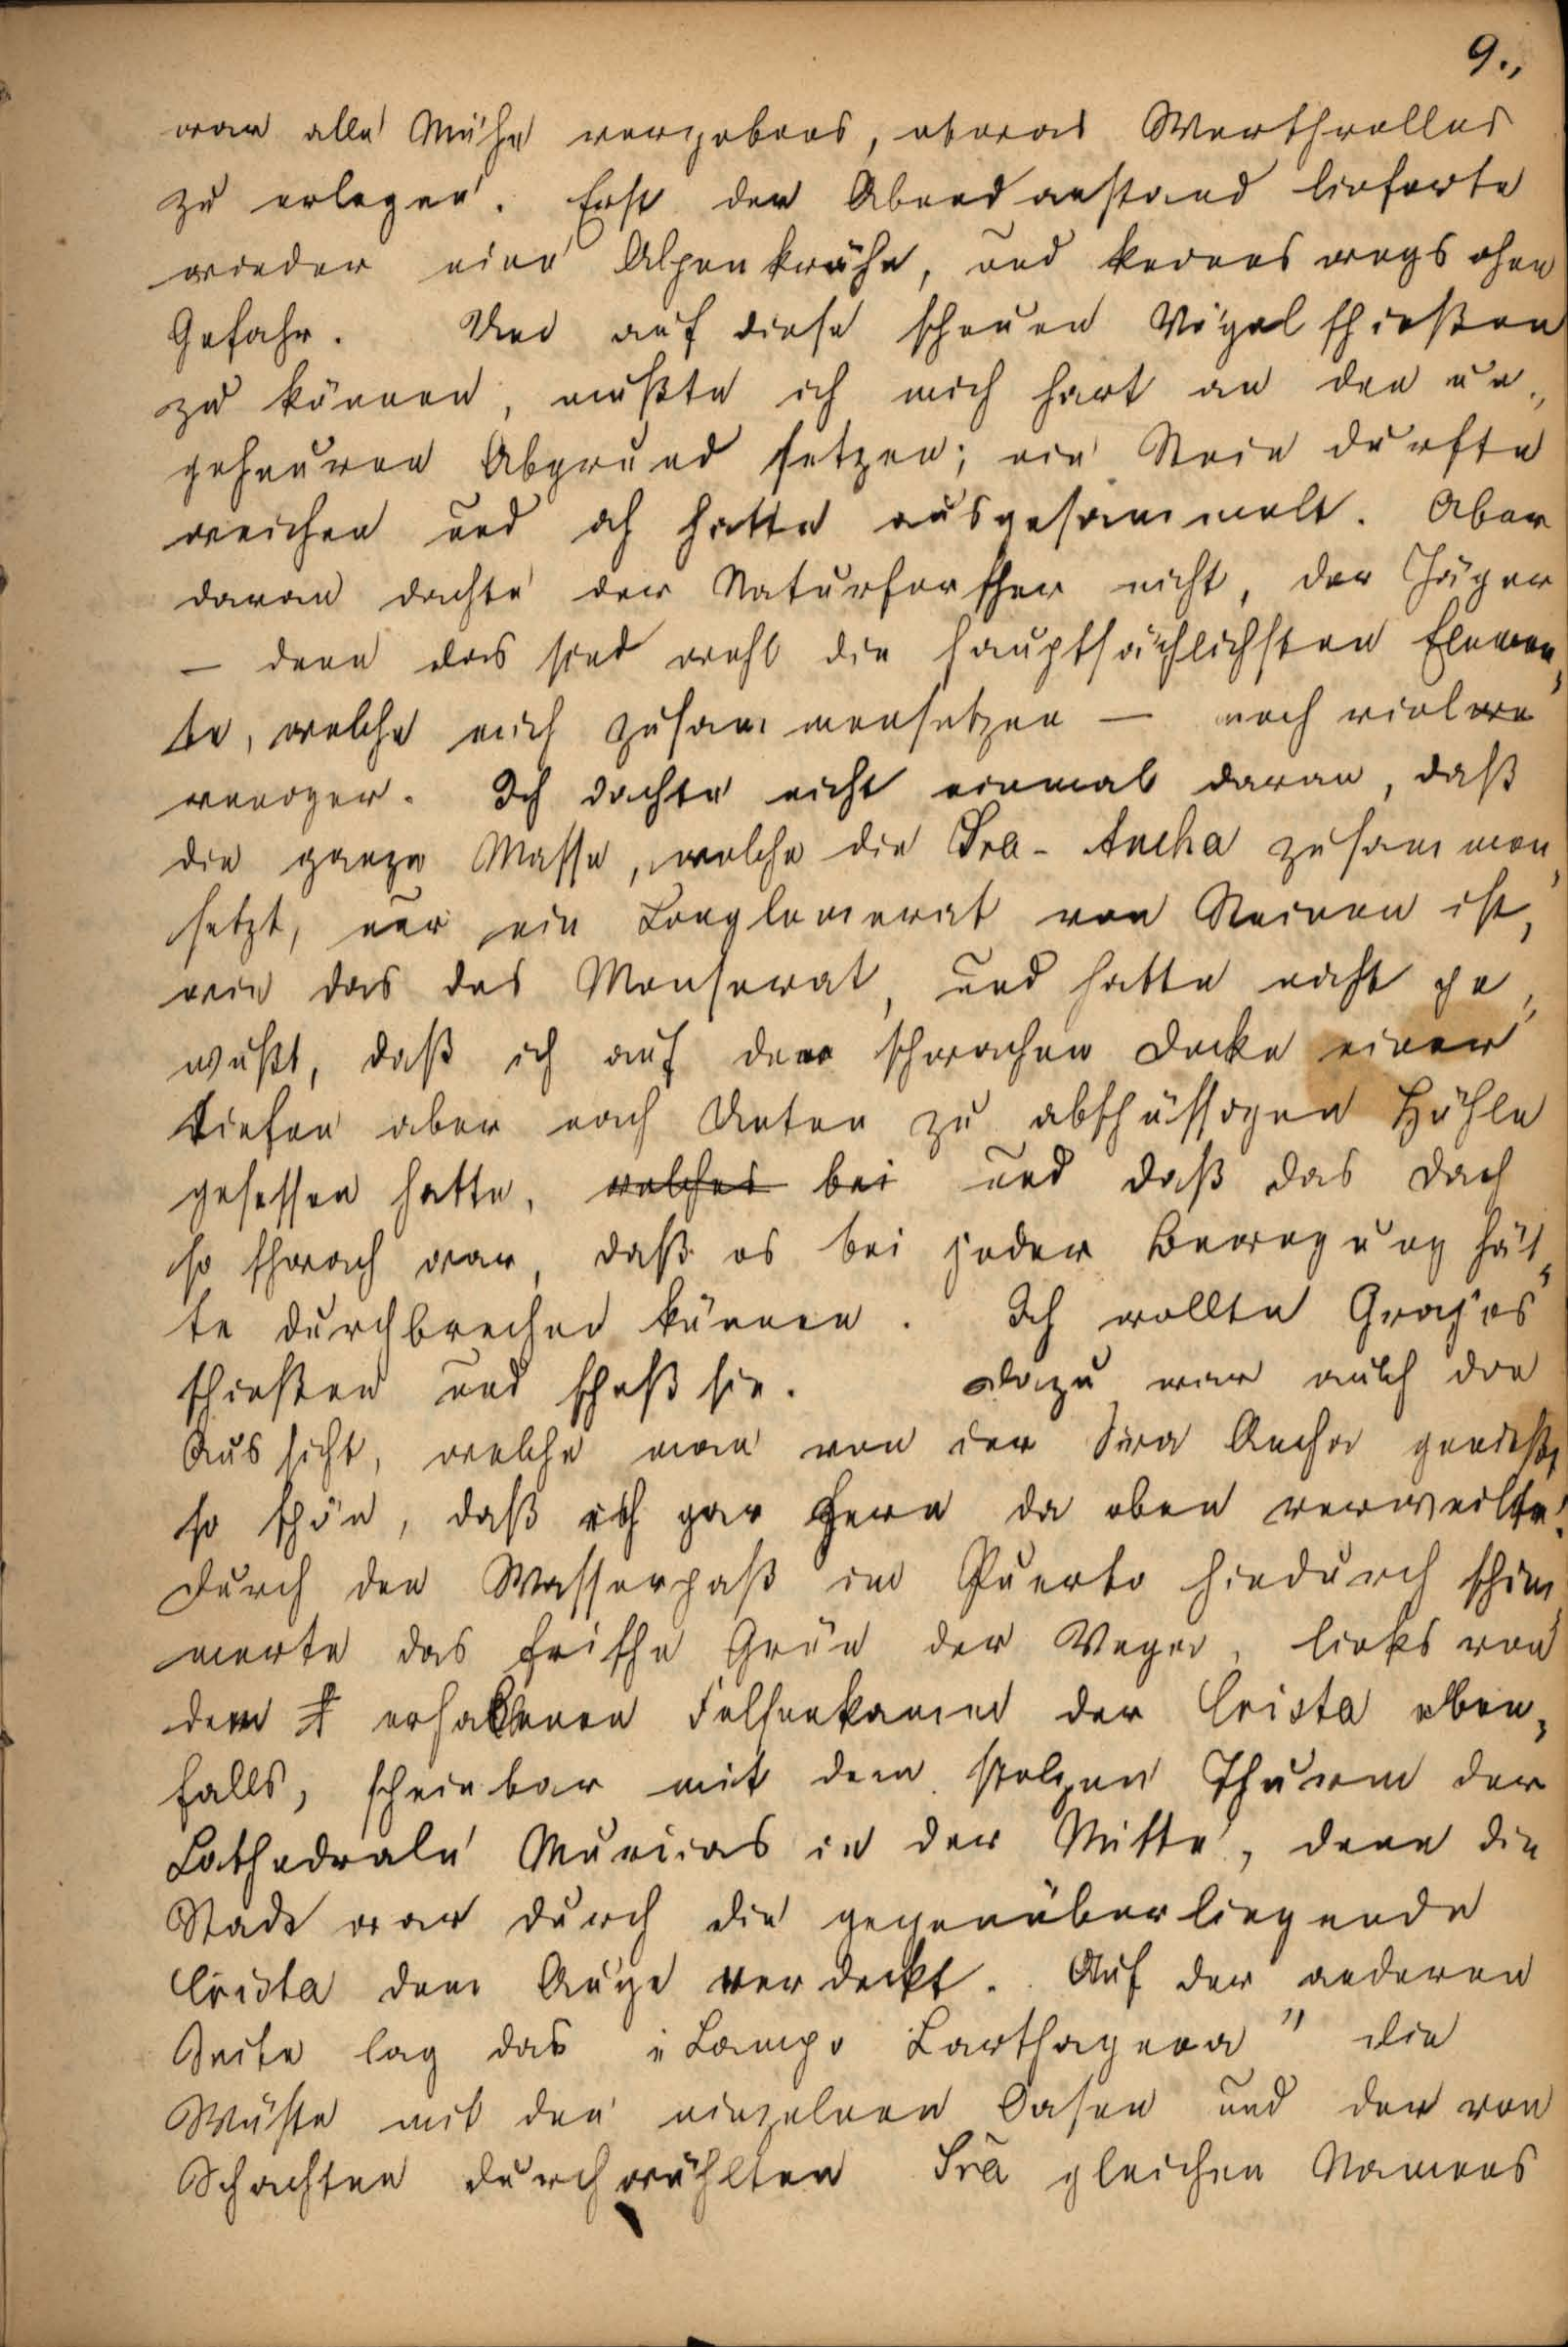 9.,
war alle Mühe vergebens, etwas Werthvolles
zu erlegen. Erst der Abendanstand lieferte
wieder eine Alpenkrähe, und keineswegs ohne
Gefahr. Um auf diese scheuen Vögel schießen
zu können, mußte ich mich hart an den un„
geheuren Abgrund setzen; ein Stein durfte
weichen und ich hatte ausgesammelt. Aber
daran dachte der Naturforscher nicht, der Jäger
— denn das sind wohl die hauptsächlichsten Elemen„
te, welche mich zusammensetzen — noch viel
weniger. Ich dachte nicht einmal daran, daß
die ganze Masse, welche die Sra- Ancha zusammen„
setzt, nur ein Conglomerat von Steinen ist,
wie das des Monserat, und hatte nicht ge„
wußt, daß ich auf der schwachen Decke einer
tiefen aber nach Unten zu abschüssigen Höhle
gesessen hatte, welches bei und daß das Dach
so schwach war, daß es bei jeder Bewegung hät„
te durchbrechen können. Ich wollte Grajos
schießen und schoß sie. Dazu war auch die
Aussicht, welche man von der Sira Ancha genießt,
so schön, daß ich gar gern da oben verweilte.
Durch den Wasserpaß im Puerto hindurch schim„
merte das frische Grün der Vega, links von
dem erhabenen Felsenkamm der Cresta eben„
falls, scheinbar mit dem stolzen Thurm der
Cathedrale Murcias in der Mitte, denn die
Stadt war durch die gegenüberliegende
Cresta dem Auge verdeckt. Auf der anderen
Seite lag das „Campo Carthagena" die
Wüste mit den einzelnen Oasen und der von
Schachten durchwühlten Sra gleichen Namens